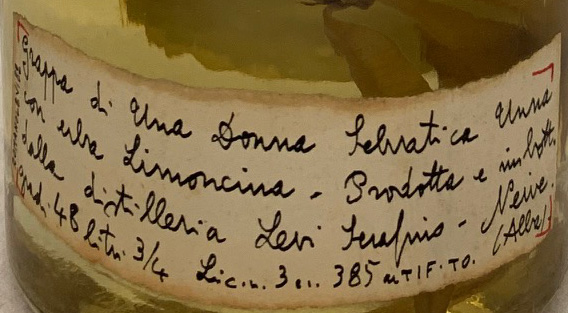 Grappa di una Donna Selvatica
con erba Limoncina - Prodotta e imbott.
dalla distilleria Levi Serafino - Neive.
gradi 48 litri 3/4 Lic. n. 3 385 UTIF. TO. (Alba)